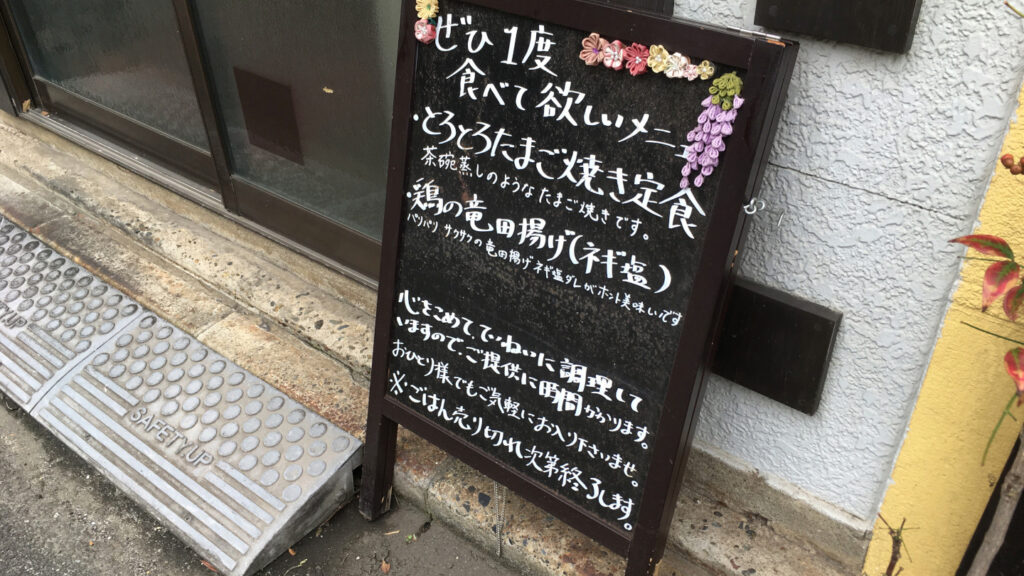 ぜひ1度
食べて欲しいメニュー
・とろとろたまご焼き定食
茶碗蒸しのような たまご焼きです。
・鶏の竜田揚げ(ネギ塩)
パリパリ サクサクの竜田揚げ ネギ塩ダレがホント美味いです
心をこめて、ていねいに調理して
いますので、ご提供に時間がかかります。
おひとり様でもご気軽にお入り下さいませ。
※ごはん売り切れ次第終了します。
SAFETY UP